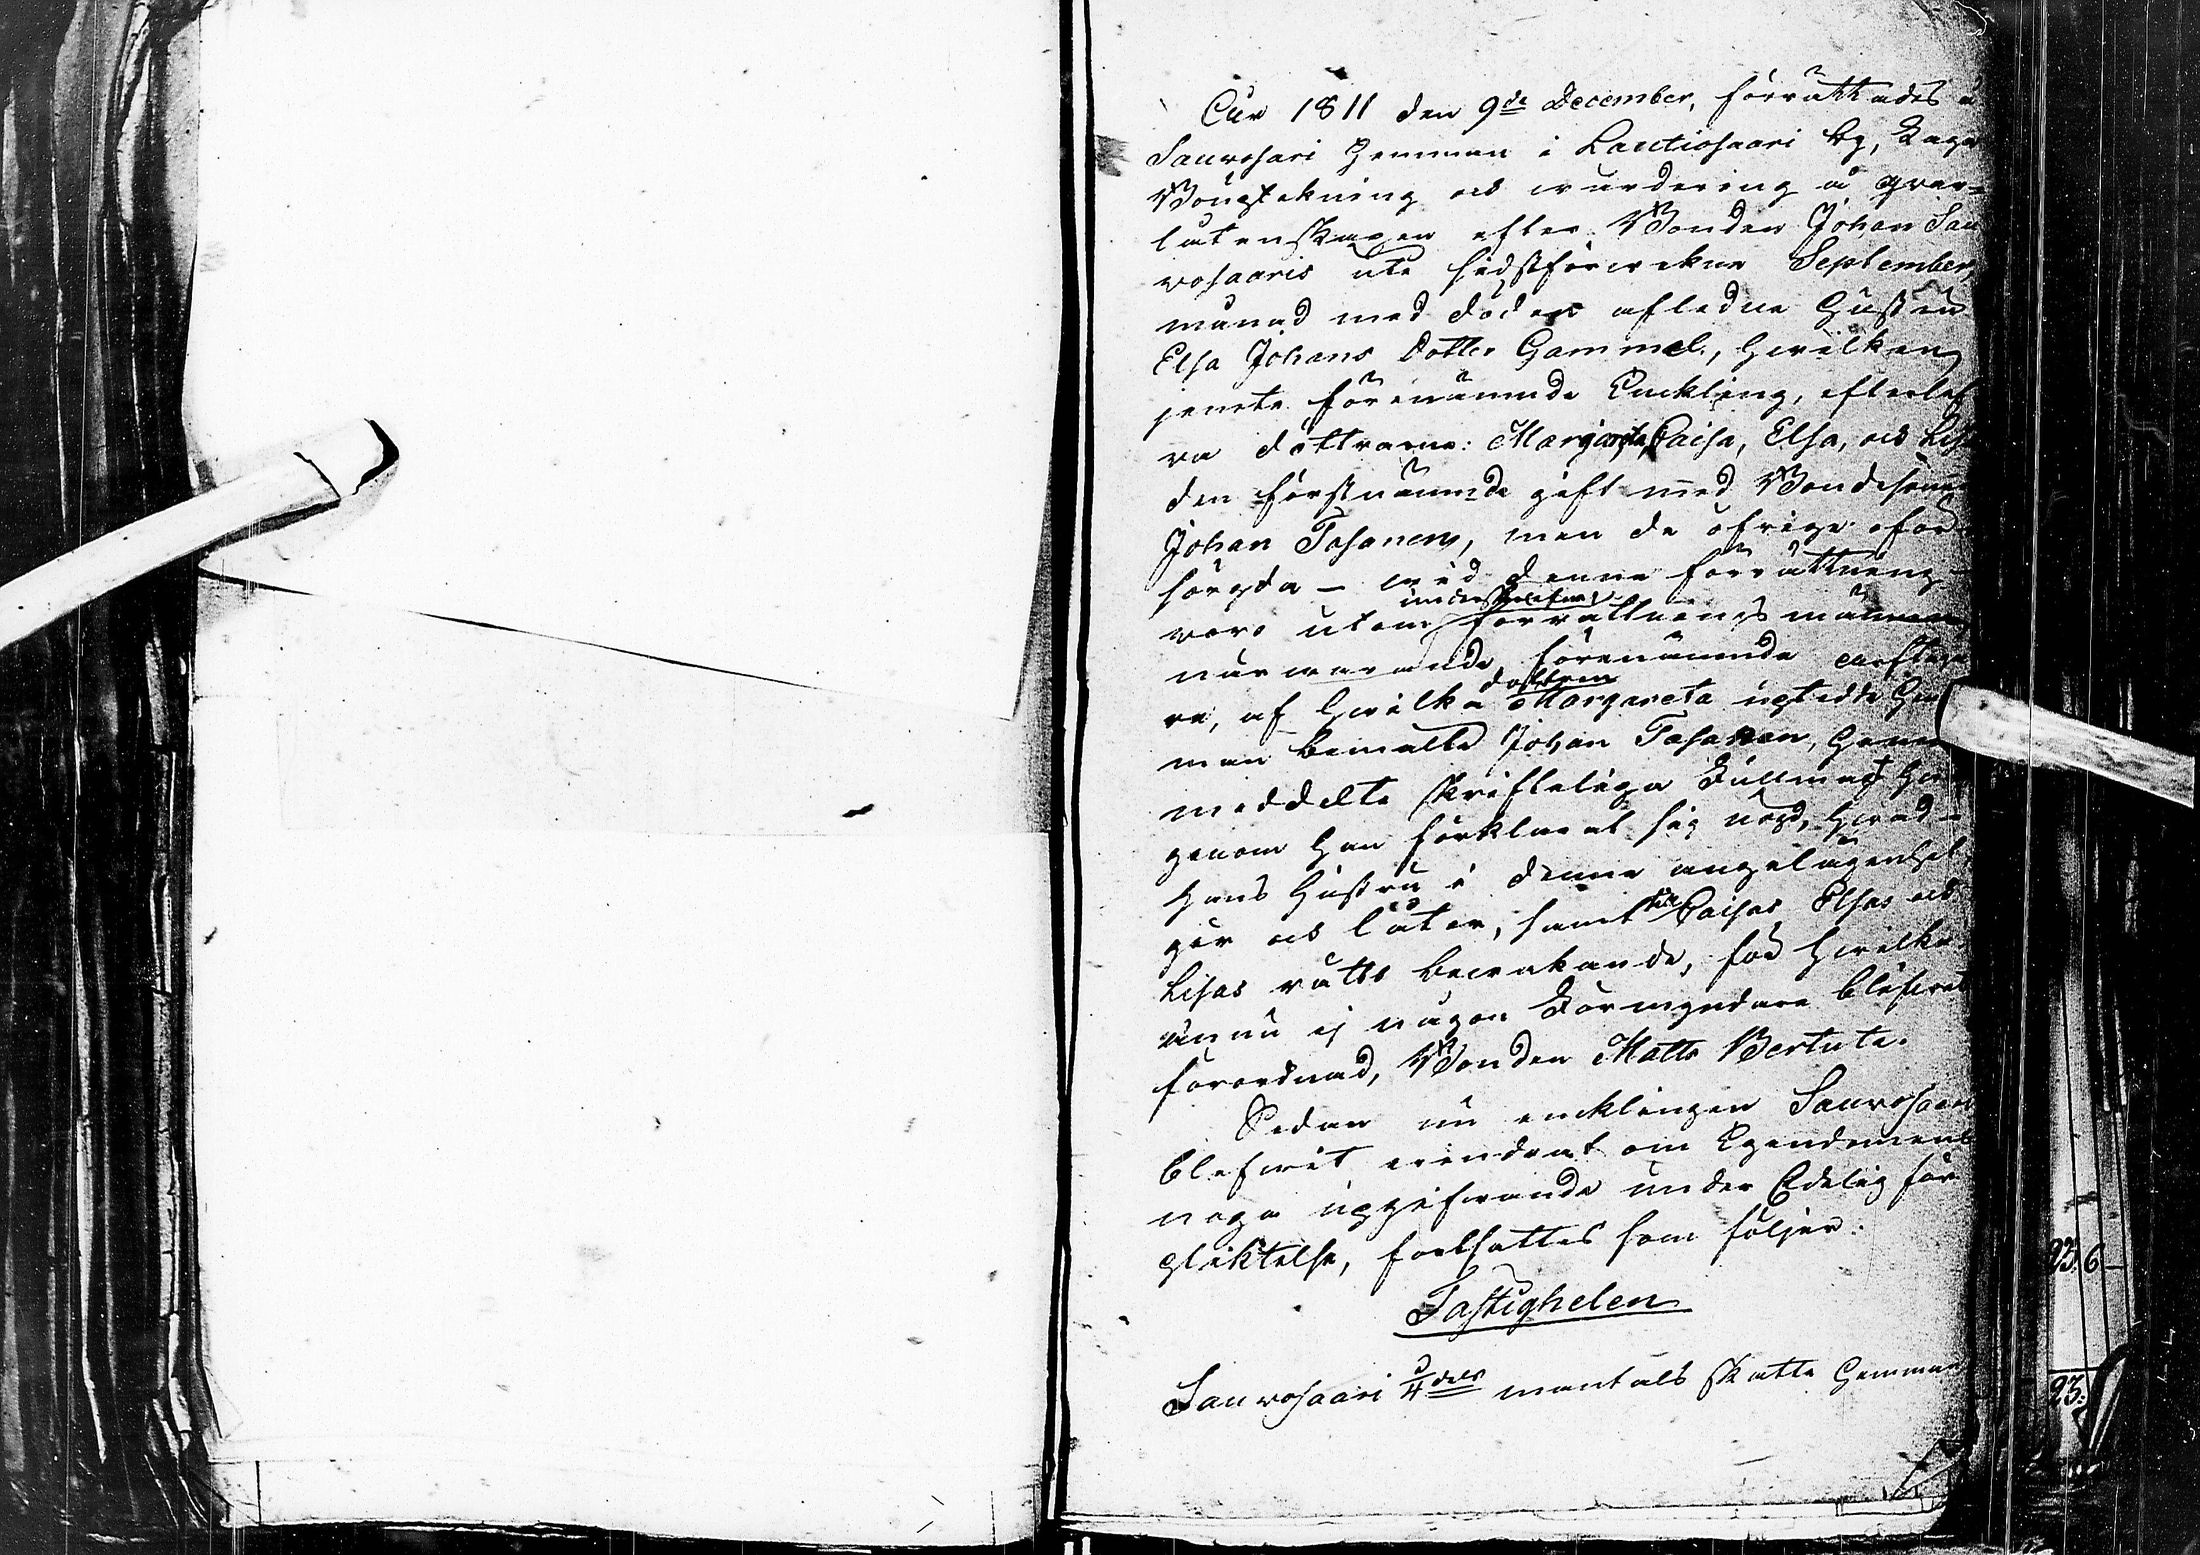 Åhr 1811 den 9de December, förrättades å
Sauvosari Hemman i Lautiosaari by, Laga
Bouptekning och wärdering å qvar-
låtenskapen efter Bonden Johan Sau
vosaaris uti sidstförwekne September
månad med döden afledne Hustru
Elsa Johans Dotter Gammel, hwilken
jemte förenämnde Enckling, efterlef
va döttrarne: Margareta, Caisa, Elsa, och Lisa
den förstnämnde gift med Bondesonen
Johan Tosanen, men de öfrige oför-
sörgda – wid denne förrättning
underskrefne
voro utom förrättnings männen
närwarande, förenämnde arftaga
dottren
re, af hwilka Margareta uptedde sin
man bemälte Johan Tosanen, Henne
meddelte skrifteliga Fullmagt hwar
genom han förklarat sig nögd, hwad
hans Hustru i denne angelägenhet
gör och låter, samt för Caisas Elsas och
Lisas rätts bewakande, för hwilka
ännu ej någon Förmyndare blifwit
förordnad, Bonden Matts Bertula.
Sedan nu encklingen Sauvosaari
blifwit erindrat om Egendomens
noga uppgifwande under Edelig för
pliktelse, fortsattes som följer:
Fastigheten
Sauvosaari 3/4 dels mantals skatte Hemman
23. 6 –
23: